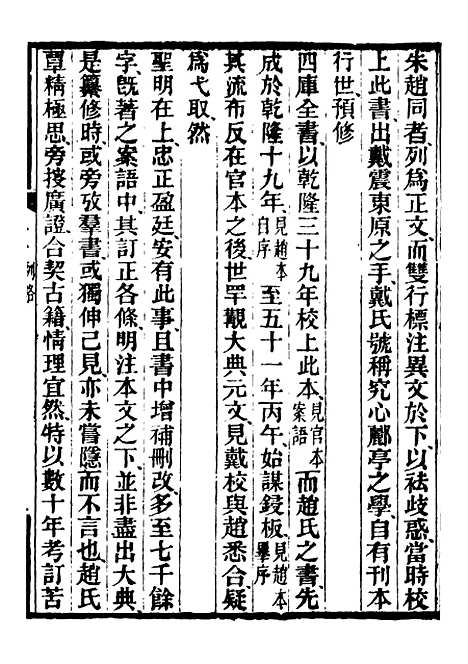 朱趙同者列爲正文而雙行標注異文於下以祛歧惑當時校
上此書出戴震東原之手戴氏號稱究心酈亭之學自有刊本
行世預修
四庫全書以乾隆三十九年校上此本見官本案語而趙氏之書先
成於乾隆十九年見趙本自序至五十一年丙午始謀鋟板見趙本畢序
其流布反在官本之後世罕觀大典元文見戴校與趙悉合疑
爲弋取然
聖明在上忠正盈廷安有此事且書中增補刪改多至七千餘
字旣著之案語中其訂正各條明注本文之下並非盡出大典
是纂修時或旁攷羣書或獨伸己見亦未嘗隱而不言也趙氏
覃精極思旁搜廣證合契古籍情理宜然特以數十年考訂苦
例略